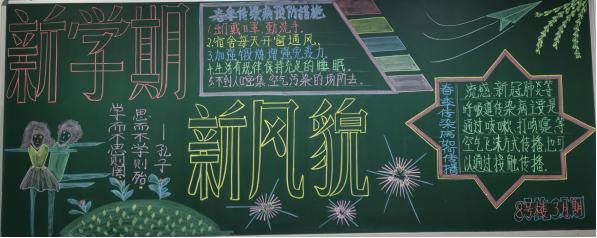 新学期
春季传染病预防措施
1.出门戴口罩,勤洗手。
2.宿舍每天开窗通风。
3.加强锻炼增强免疫力。
4.生活有规律,保持充足的睡眠。
5.不到人口密集,空气污染的场所去。
学而不思则罔
思而不学则殆。
——孔子
新风貌
春季传染病如何传播
流感、新冠肺炎等
呼吸道传染病主要是
通过咳嗽、打喷嚏等
空气飞沫方式传播,也可
以通过接触传播。
8号楼 3月期